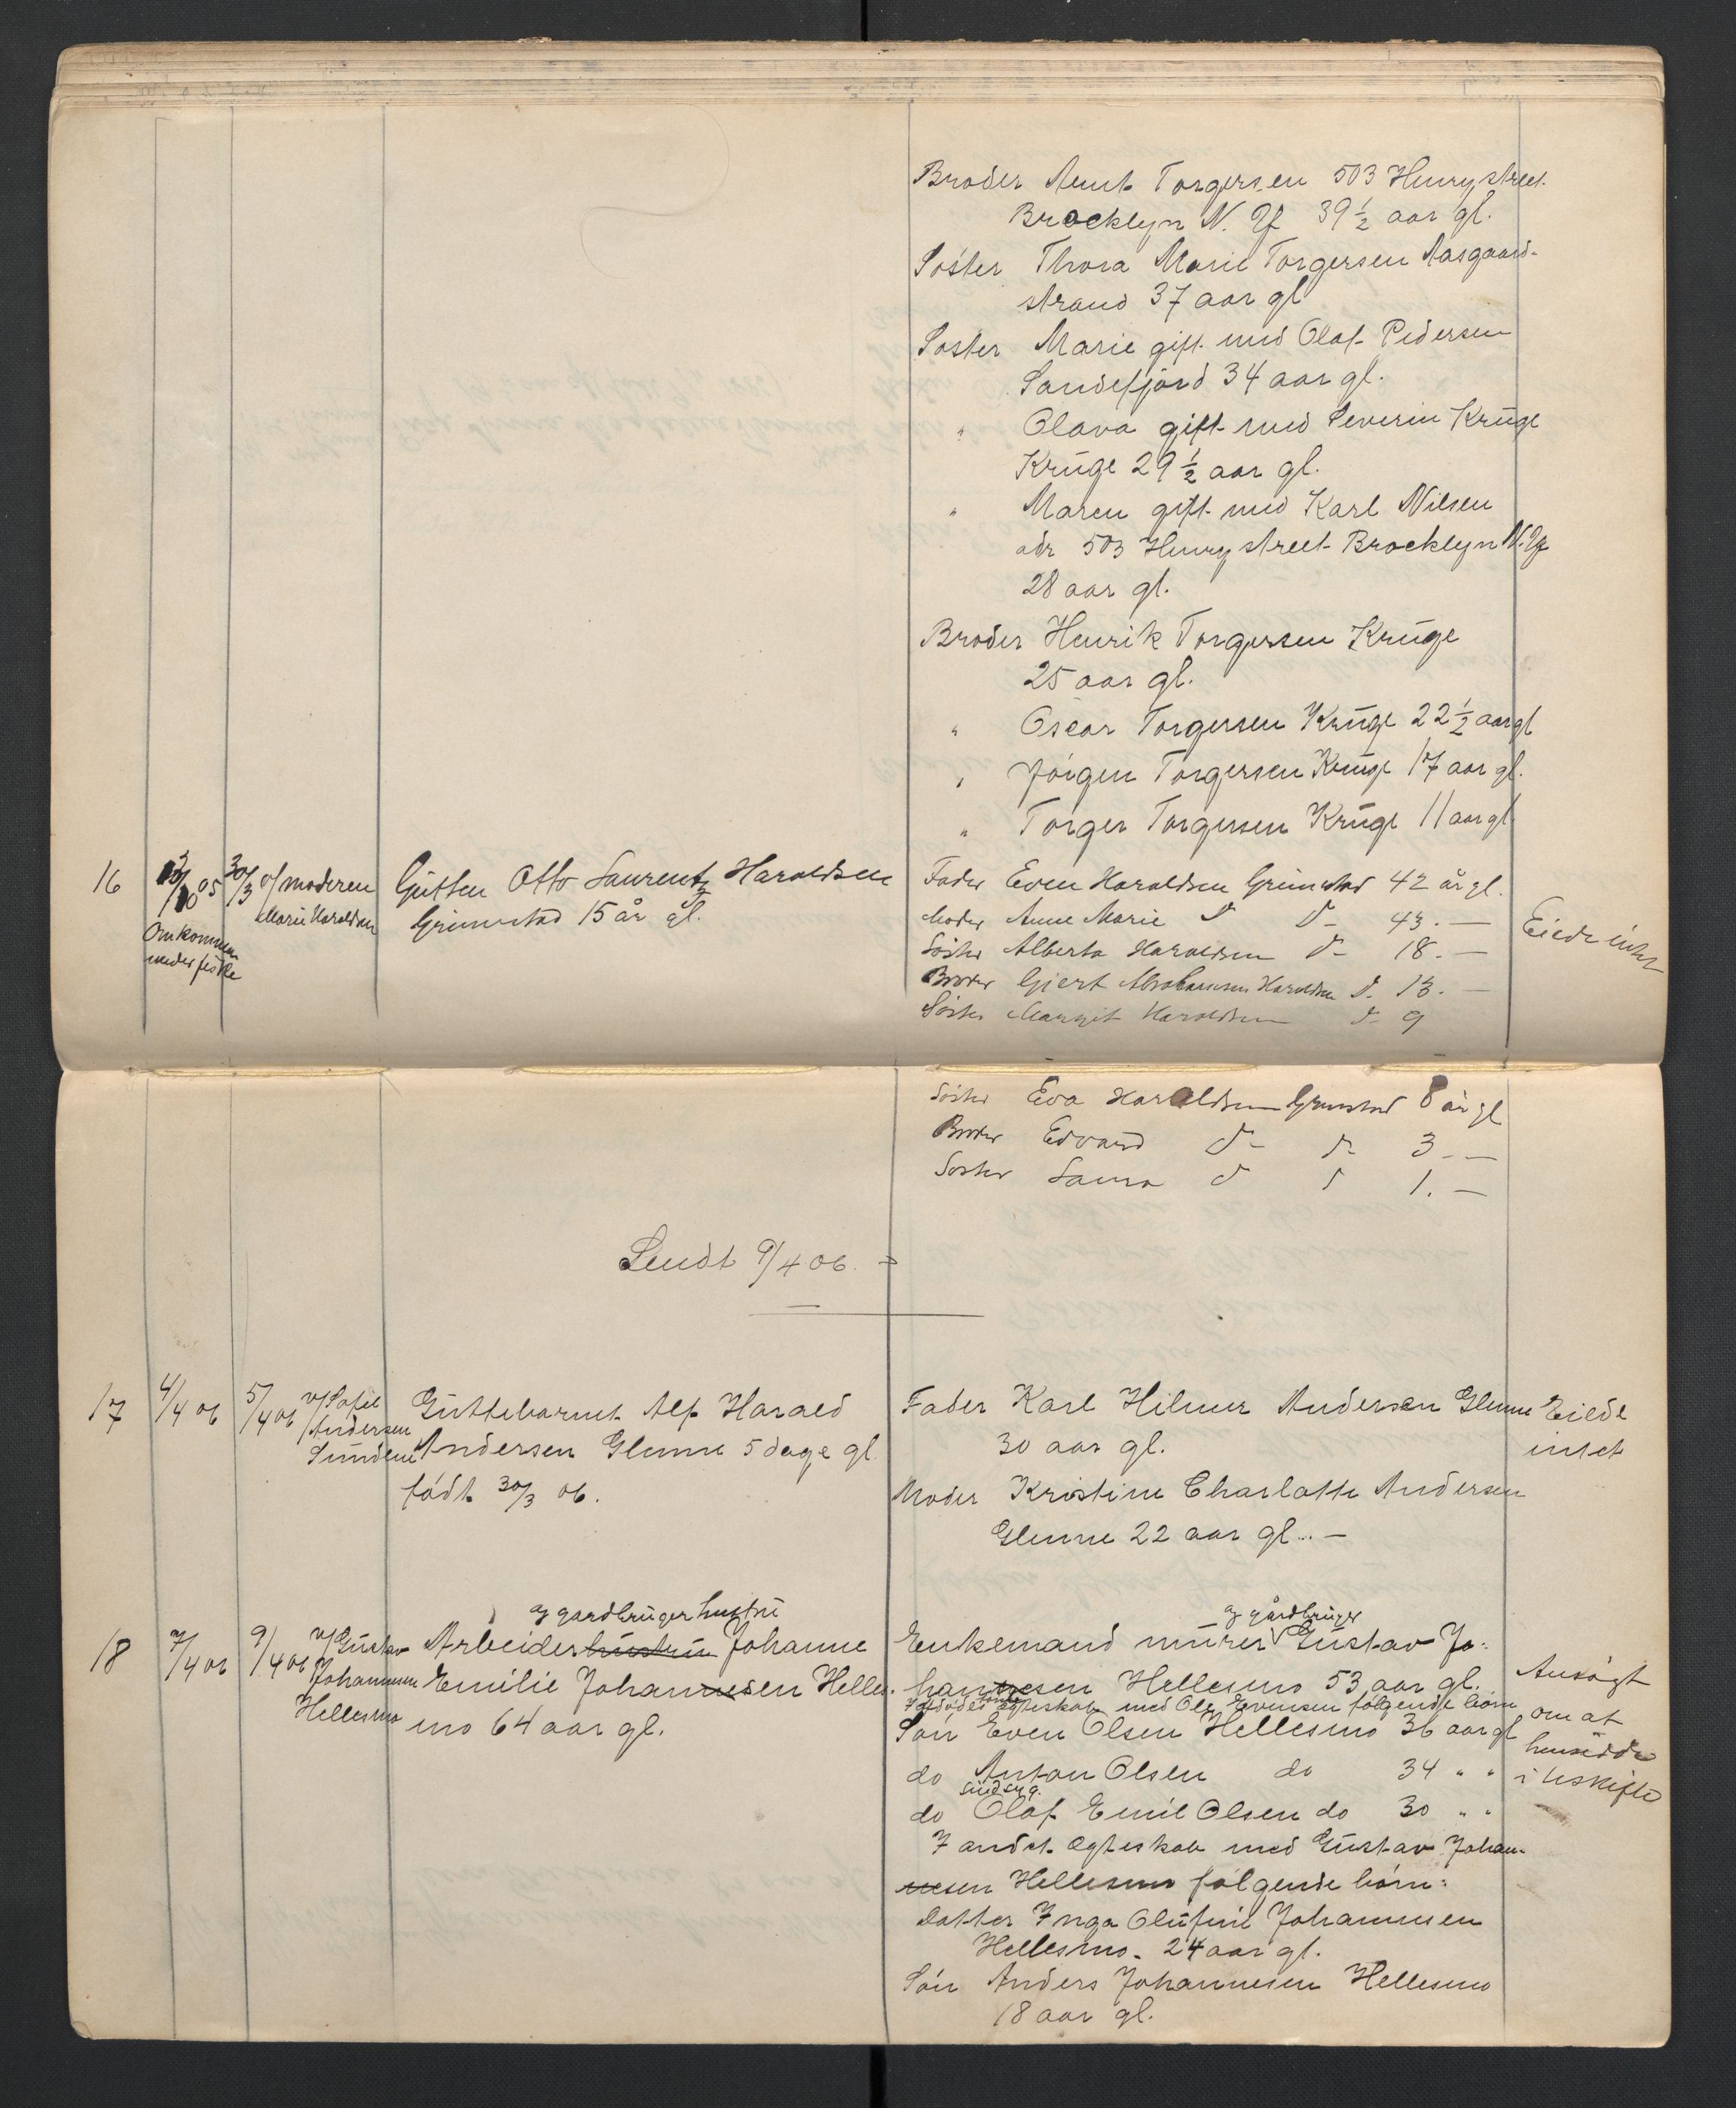 Broder Arnt Torgersen 503 Henry street.
Brocklyn N. Y 39 1/2 aar gl.
Søster Thora Marie Torgersen Aasgaard-
strand 37 aar gl
Søster Marie gift med Olaf Pedersen
Sandefjord 34 aar gl.
" Olava gift med Severin Krüge
Krüge 29 1/2 aar gl.
" Maren gift med Karl Nilsen
adr 503 Henry street Brocklyn N.Y
28 aar gl.
Broder Henrik Torgersen Krüge
25 aar gl.
" Oscar Torgersen Krüge 22 1/2 aar gl
" Jörgen Torgersen Krüge 17 aar gl.
" Torger Torgersen Krüge 11 aar gl.
16 05 30/3 v/ moderen Gutten Otto Laurentz Haraldsen
Marie Haraldsen Grimstad 15 år gl.
Omkommen
under fiske
Fader Even Haraldsen Grimstad 42 år gl.
Moder Anne Marie d d- 43. —
Søster Alberta Haraldsen d- 18. —
Broder Gjert Abrahamsen Haraldsen d. 13. —
Søster Margit Haraldsen d- 9
Eiede intet
Søster Eva Haraldsen Grimstad 8 år gl
Broder Edvard d- d- 3 - —
Søster Laura d d 1. —
Sendt 9/4 06.
17 4/4 06 5/4 06 v/ Sofie Andersen Sundene
Guttebarnet Alf Harald
Andersen Glenne 5 dage gl
født 30/3 06.
Fader Karl Hilmer Andersen Glenne
30 aar gl.
Moder Kristine Charlotte Andersen
Glenne 22 aar gl. —
Eiede
intet
18 7/4 06 9/4 06 v/ Gustav Johannesen Hellesmo
og gardbruger hustru
Arbeiderhustru Johanne
Emilie Johannesen Helles-
mo 64 aar gl.
og gårdbruger
Enkemand murer Gustav Jo-
hannesen Hellesmo 53 aar gl.
egteskab med Ole Evensen følgende børn
Søn Even Olsen Hellesmo 36 aar gl
do Anton Olsen do 34 " "
sindsyg.
do Olaf Emil Olsen do 30 " "
I andet Egteskab med Gustav Johan-
nesen Hellesmo følgende børn:
Datter Inga Olufine Johannesen
Hellesmo. 24 aar gl.
Søn Anders Johannesen Hellesmo
18 aar gl.
Ansøgt
om at
hensidde
i uskifte